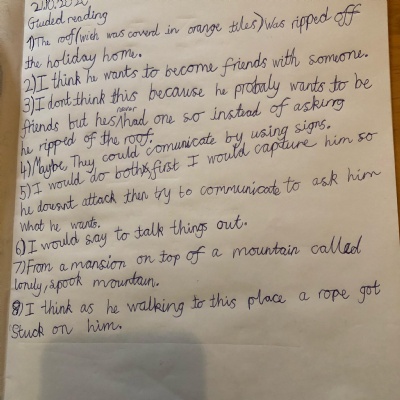 Guded reading
1) The roof (wich was coverd in orange tiles) was ripped off
the holiday home.
2) I think he wants to become friends with someone.
3) I dont think this because he probaly wants to be
friends but hes never had one so instead of asking
he ripped of the roof.
4) Maybe, They could comunicate by using signs.
5) I would do both, first I would capture him so
he doesnt attack then try to communicate to ask him
what he wants.
6) I would say to talk things out.
7) From a mansion on top of a mountain called
lonely, spook mountain.
8) I think as he walking to this place a rope got
stuck on him.